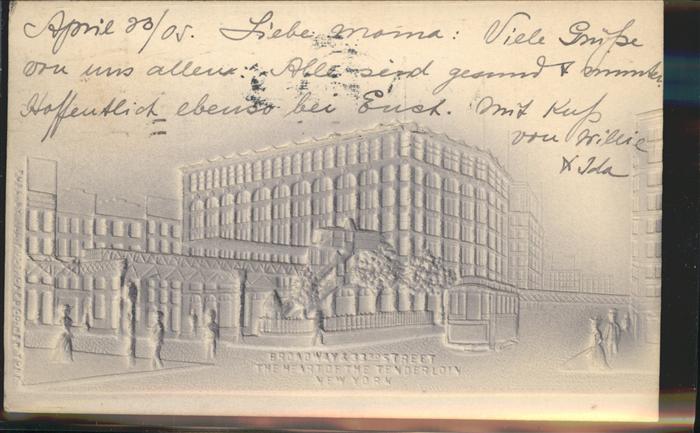 April 23/05. Liebe Mama: Viele Grüße
von uns allen. Alle sind gesund & munter.
Hoffentlich ebenso bei Euch. Mit Kuß
von Willie
& Ida
BROADWAY & 33RD STREET
THE HEART OF THE TENDERLOIN
NEW YORK